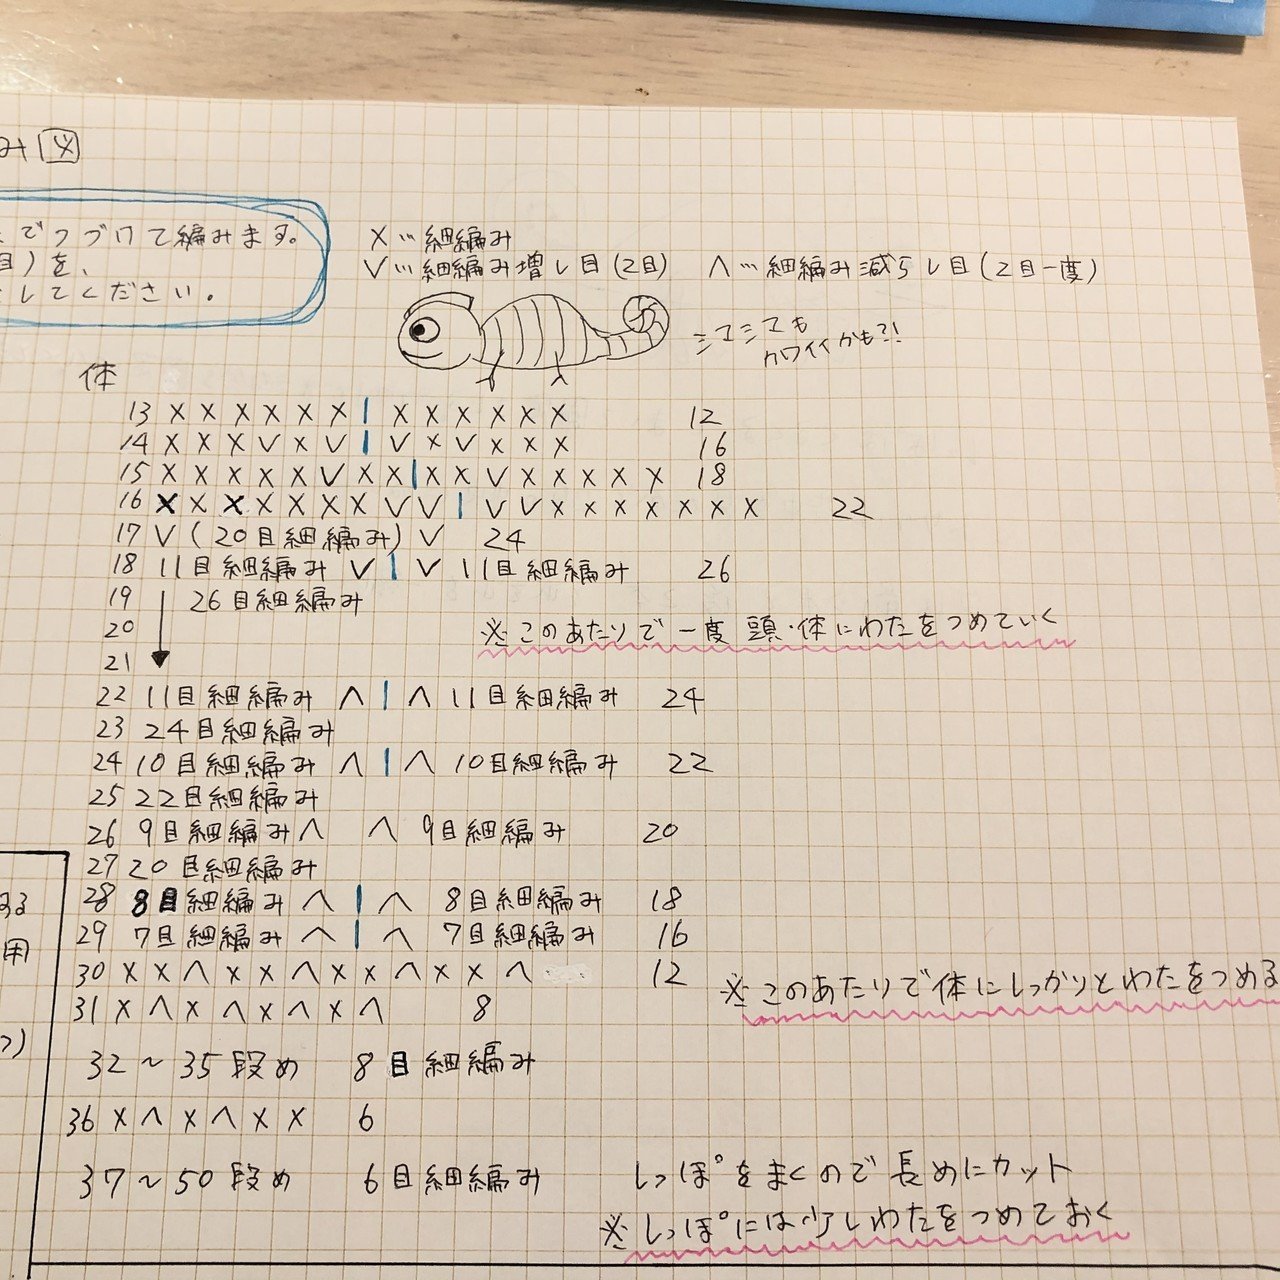 み図
でつづけて編みます。
目)を、
してください。
X…細編み
V…細編み増し目(2目) ∧…細編み減らし目(2目一度)
シマシマも
カワイイかも?!
体
13 X X X X X X | X X X X X X 12
14 X X X V X V | V X V X X X 16
15 X X X X X V X X | X X V X X X X X 18
16 X X X X X X X V V | V V X X X X X X X 22
17 V (20目細編み) V 24
18 11目細編み V | V 11目細編み 26
19 ↓ 26目細編み
20
※このあたりで一度 頭・体にわたをつめていく
21
22 11目細編み ∧ | ∧ 11目細編み 24
23 24目細編み
24 10目細編み ∧ | ∧ 10目細編み 22
25 22目細編み
26 9目細編み ∧ ∧ 9目細編み 20
27 20目細編み
28 8目細編み ∧ | ∧ 8目細編み 18
29 7目細編み ∧ | ∧ 7目細編み 16
30 X X ∧ X X ∧ X X ∧ X X ∧ 12
※このあたりで体にしっかりとわたをつめる
31 X ∧ X ∧ X ∧ X ∧ 8
32〜35段め 8目細編み
36 X ∧ X ∧ X X 6
37〜50段め 6目細編み
しっぽをまくので長めにカット
※しっぽには少しわたをつめておく
用